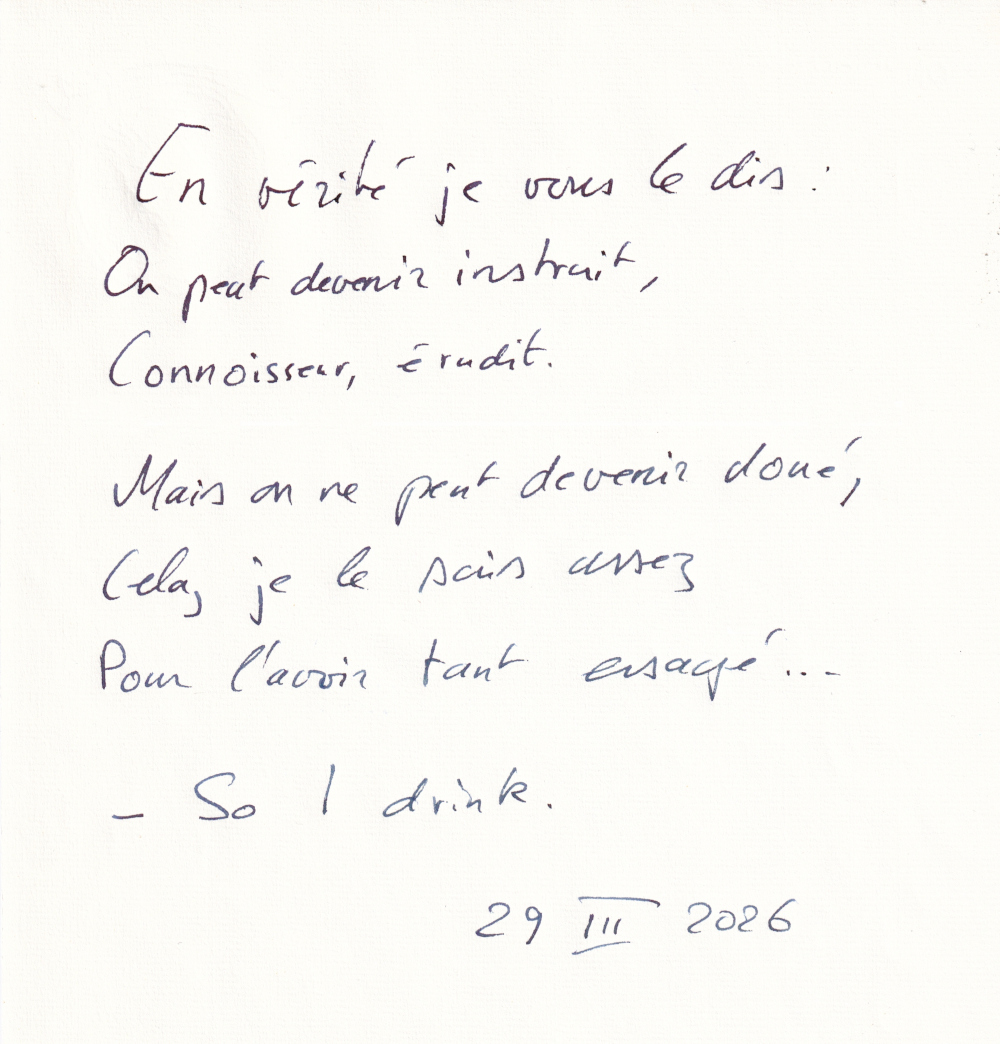 En vérité je vous le dis :
On peut devenir instruit,
Connoisseur, érudit.
Mais on ne peut devenir doué,
Cela, je le sais assez
Pour l'avoir tant essayé...
– So I drink.
29 III 2026